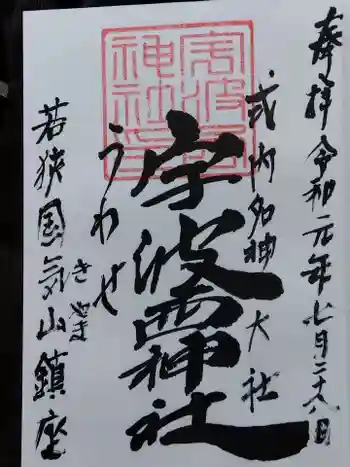 奉拝 令和元年七月二十八日
式内名神大社
宇波西神社
宇波西神社印
うわせ
若狭国気山鎮座
きやま